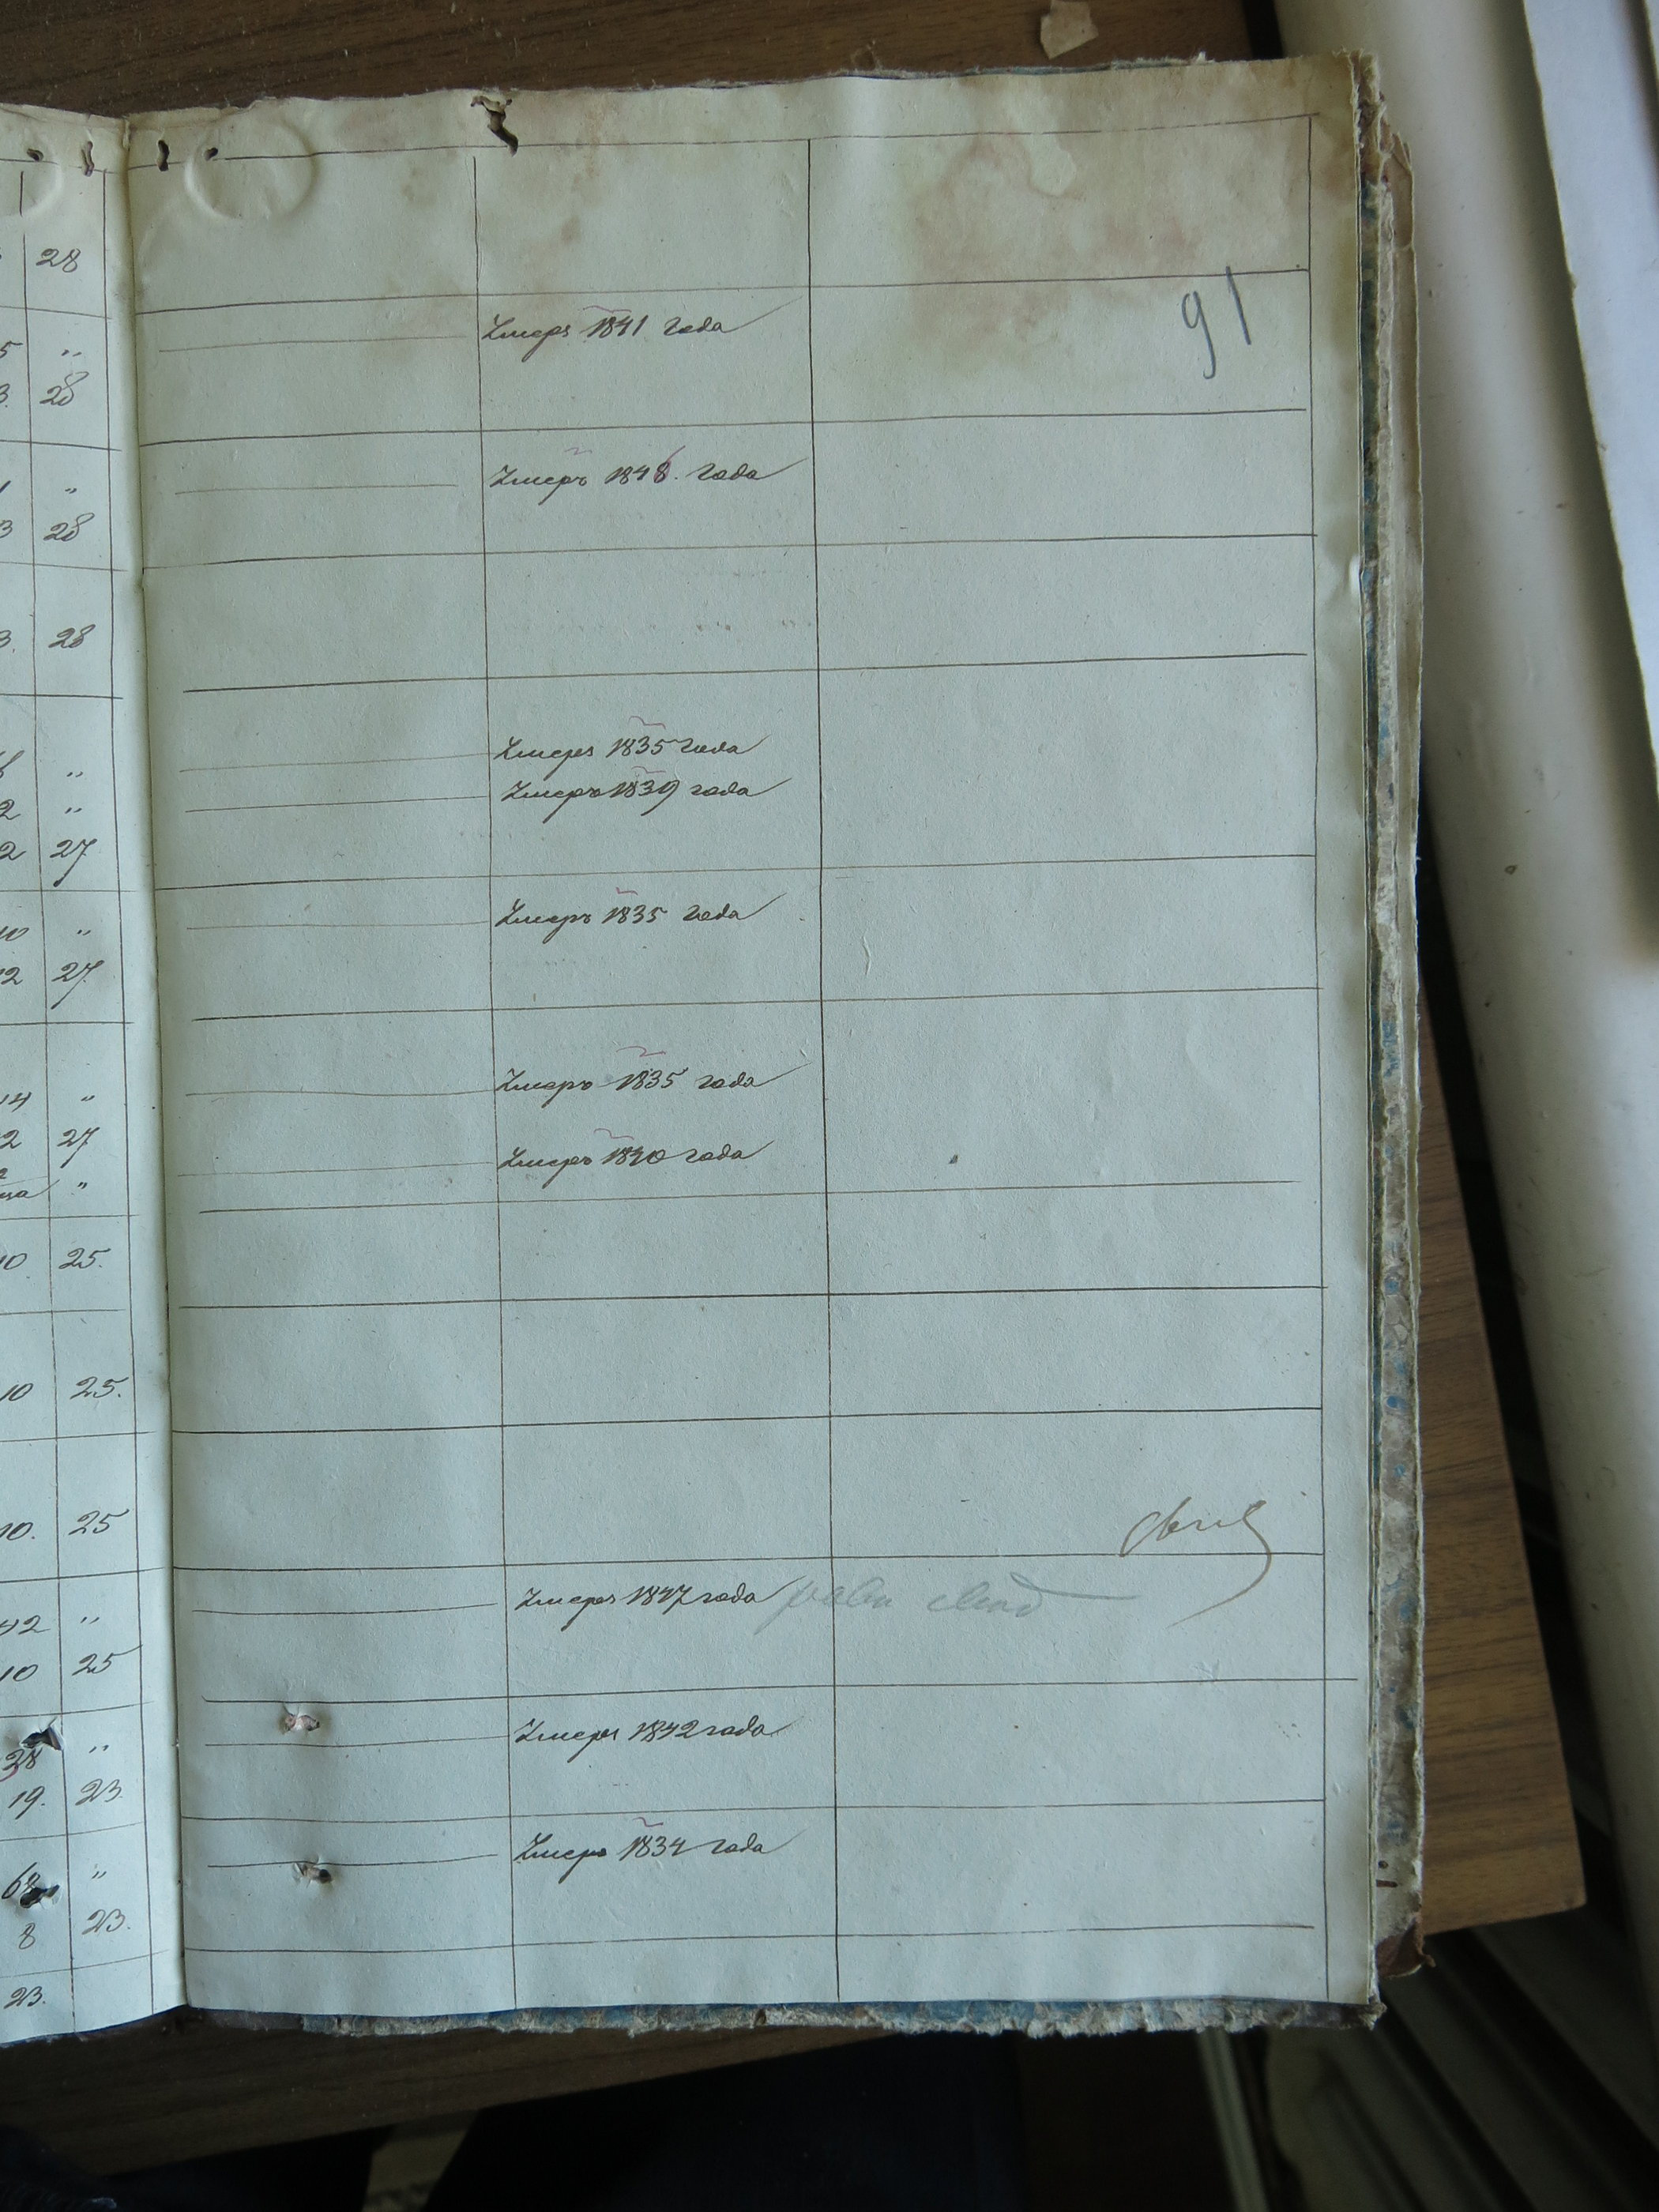 28
91
Умеръ 1841 года
5 "
3. 28
Умеръ 1848. года
"
3 28
3. 28
Умеръ 1835 года
"
Умеръ 1839 года
2 "
2 27
Умеръ 1835 года
10 "
12 27
Умеръ 1835 года
14 "
2 27
Умеръ 1840 года
"
10 25.
10 25.
10. 25
Умеръ 1847 года
42 "
10 25
Умеръ 1842 года
38 "
19. 23.
Умеръ 1834 года
68 "
8 23.
23.